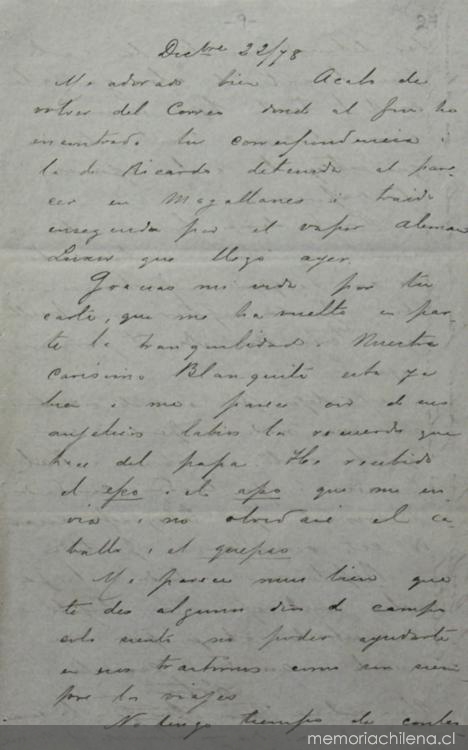 - 9 -
27
Dicbre 22/78
Mi adorado bien Acabo de
volver del Correo donde al fin he
encontrado tu correspondencia i
la de Ricardo detenida al pare-
cer en Magallanes i traida
enseguida por el vapor Aleman
que llegó ayer.
Gracias mi vida por tu
carta, que me ha vuelto en par-
te la tranquilidad. Nuestra
carisima Blanquita esta ya
bien i me parece oir de sus
angelicos labios los recuerdos que
hace del papá. He recibido
el epo i el apo que me en-
via i no olvidaré el ca-
ballo i el quepas
Me parece mui bien que
te des algunos dias de campo
solo siento no poder ayudarte
en sus trastornos como un siem-
pre los viajes
No tengo tiempo de contes
memoriachilena.cl